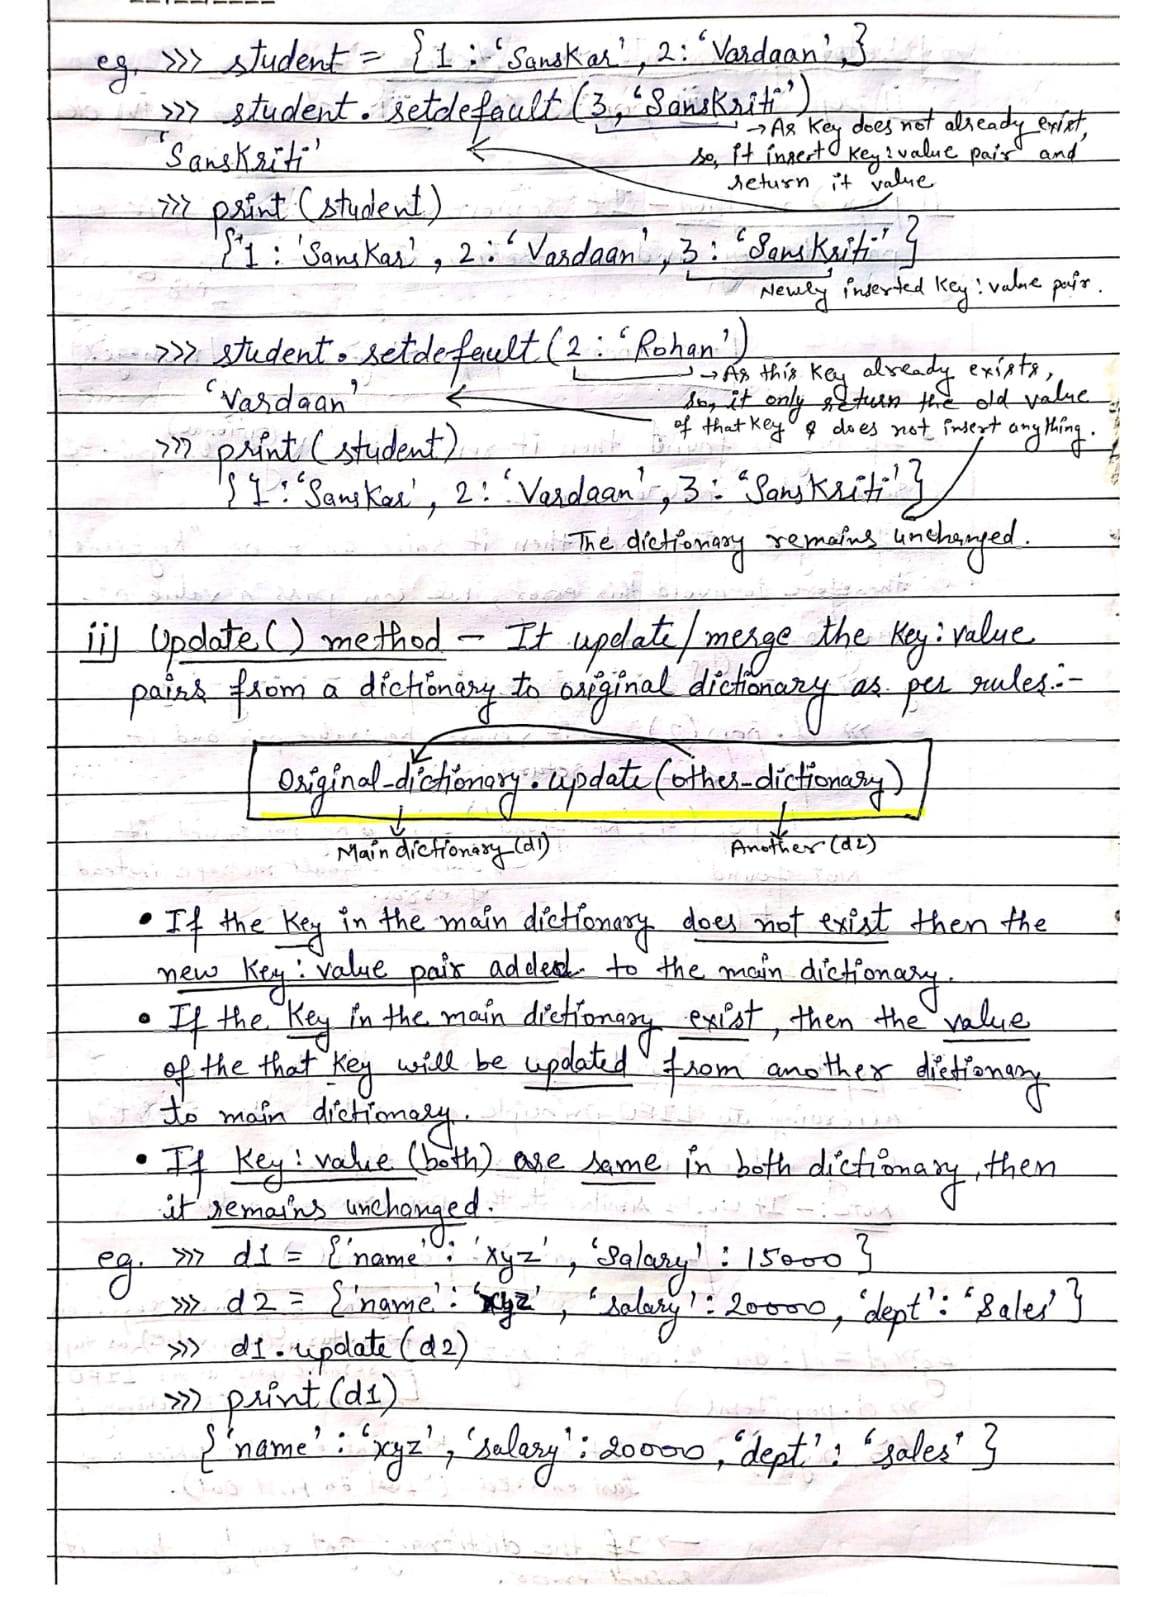 eg. >>> student = {1 : 'Sanskar', 2: 'Vardaan',}
>>> student.setdefault(3, 'Sanskriti')
→ As Key does not already exist,
so, it insert Key:value pair and
return it value
'Sanskriti'
>>> print(student)
{1 : 'Sanskar', 2 : 'Vardaan', 3 : 'Sanskriti'}
Newly inserted Key:value pair.
>>> student.setdefault(2 : 'Rohan')
→ As this Key already exists,
so, it only return the old value
of that Key & does not insert anything.
'Vardaan'
>>> print(student)
{1 : 'Sanskar', 2 : 'Vardaan', 3 : 'Sanskriti'}
The dictionary remains unchanged.
ii) Update() method – It update/merge the Key:value
pairs from a dictionary to original dictionary as per rules:-
Original_dictionary.update(other-dictionary)
Main dictionary(d1) Another(d2)
• If the Key in the main dictionary does not exist then the
new Key:value pair added to the main dictionary.
• If the Key in the main dictionary exist, then the value
of the that Key will be updated from another dictionary
to main dictionary.
• If Key:value (both) are same in both dictionary, then
it remains unchanged.
eg. >>> d1 = {'name' : 'xyz', 'salary' : 15000}
>>> d2 = {'name' : 'xyz', 'salary' : 20000, 'dept' : 'Sales'}
>>> d1.update(d2)
>>> print(d1)
{'name' : 'xyz', 'salary' : 20000, 'dept' : 'sales'}